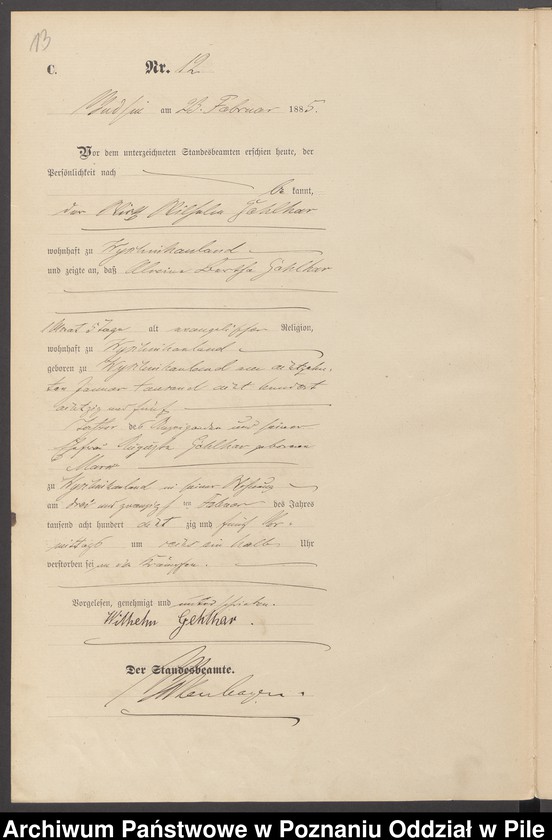 13
C. Nr. 12
Budsin am 23. Februar 1885.
Vor dem unterzeichneten Standesbeamten erschien heute, der
Persönlichkeit nach
be kannt,
der Wirth Wilhelm Gehlhar
wohnhaft zu
und zeigte an, daß Bertha Gehlhar
1 Monat 5 Tage alt evangelischer Religion,
wohnhaft zu
geboren zu am achtzehn-
ten Januar tausend acht hundert
achtzig und fünf
Tochter des Anzeigenden und seiner
Ehefrau Auguste Gehlhar geborene
zu in seiner Wohnung
am drei und zwanzigsten Februar des Jahres
tausend acht hundert acht zig und fünf Vor-
mittags um ein halb Uhr
verstorben sei an den Krämpfen.
Vorgelesen, genehmigt und unterschrieben.
Wilhelm Gehlhar.
Der Standesbeamte.
Archiwum Państwowe w Poznaniu Oddział w Pile